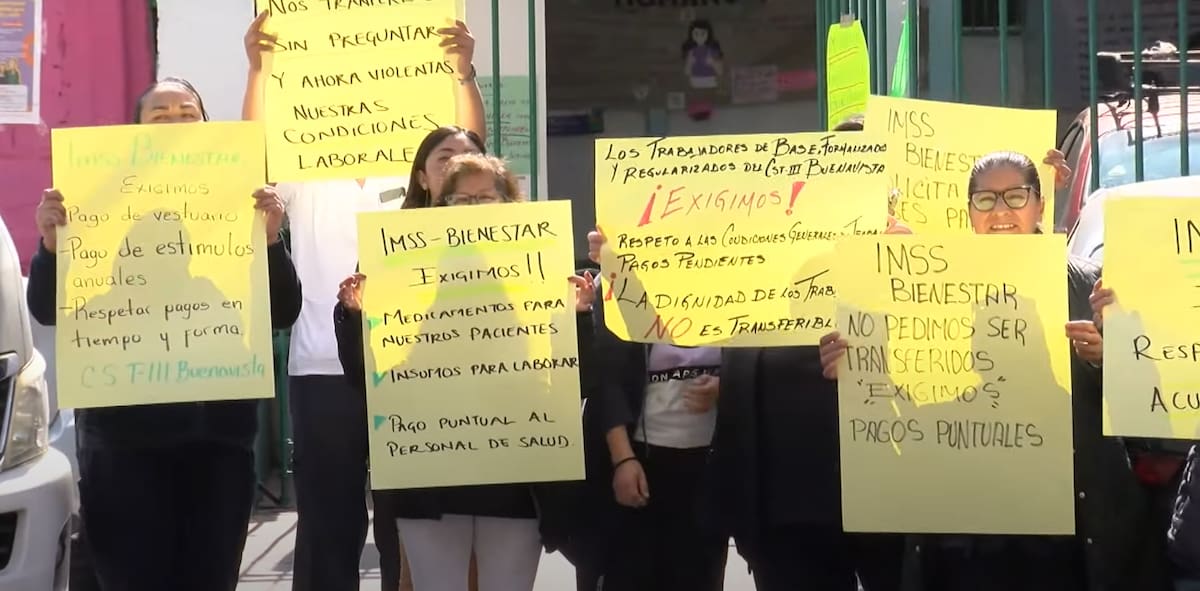 IMSS BIENESTAR,
EXIGIMOS
Pago de vestuario
- Pago de estimulos
anuales
- Respetar pagos en
tiempo y forma.
CS T-III Buenavista
SIN PREGUNTAR
Y AHORA VIOLENTAS
NUESTRAS
CONDICIONES
LABORALE
IMSS-BIENESTAR
EXIGIMOS!!
MEDICAMENTOS PARA
NUESTROS PACIENTES
INSUMOS PARA LABORAR
PAGO PUNTUAL AL
PERSONAL DE SALUD.
LOS TRABAJADORES DE BASE, FORMALIZADO
Y REGULARIZADOS DEL CST-III BUENAVISTA
¡EXIGIMOS!
RESPETO A LAS CONDICIONES GENERALES
PAGOS PENDIENTES
¡LA DIGNIDAD DE LOS TRAB
NO ES TRANSFERIBL
IMSS
BIENESTAR
IMSS
BIENESTAR
NO PEDIMOS SER
TRANSFERIDOS
"EXIGIMOS"
PAGOS PUNTUALES
IM
RESP
ACU